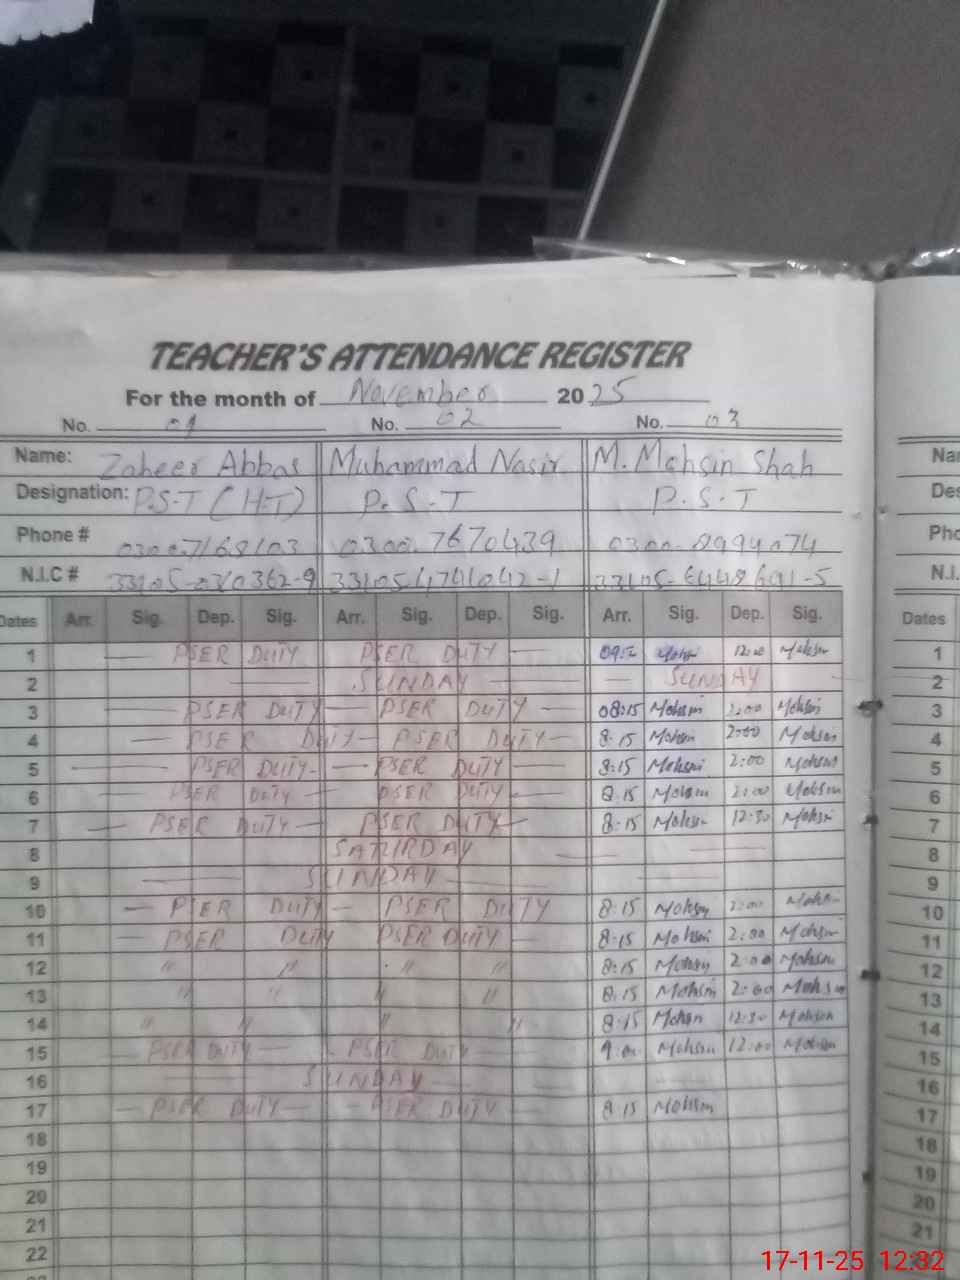 TEACHER'S ATTENDANCE REGISTER
For the month of November 2025
No. 01 No. 02 No. 03
Name: Zaheer Abbas Muhammad Nasir M. Mohsin Shah Nar
Designation: P.S.T (H.T) P.S.T P.S.T Des
Phone # 0300.7168103 0300.7670439 0300.8994074 Pho
N.I.C # 33105-4741042-1 N.I.
Dates Arr. Sig. Dep. Sig. Arr. Sig. Dep. Sig. Arr. Sig. Dep. Sig. Dates
1 PSER DUTY PSER DUTY Mohsin 12:00 Mohsin 1
2 SUNDAY SUNDAY 2
3 PSER DUTY PSER DUTY 08:15 Mohsin 2:00 Mohsin 3
4 PSER DUTY PSER DUTY 8:15 Mohsin 2:00 Mohsin 4
5 PSER DUTY PSER DUTY 8:15 Mohsin 2:00 Mohsin 5
6 PSER DUTY PSER DUTY 8:15 Mohsin 2:00 Mohsin 6
7 PSER DUTY PSER DUTY 8:15 Mohsin 12:30 Mohsin 7
8 SATURDAY 8
9 SUNDAY 9
10 PSER DUTY PSER DUTY 8:15 Mohsin 2:00 Mohsin 10
11 PSER DUTY PSER DUTY 8:15 Mohsin 2:00 Mohsin 11
12 " " " " 8:15 Mohsin 2:00 Mohsin 12
13 " " " " 8:15 Mohsin 2:00 Mohsin 13
14 " " " " 8:15 Mohsin 12:30 Mohsin 14
15 PSER DUTY PSER DUTY 9:00 Mohsin 12:00 Mohsin 15
16 SUNDAY 16
17 PSER DUTY PSER DUTY 8:15 Mohsin 17
18 18
19 19
20 20
21 21
22
17-11-25 12:32